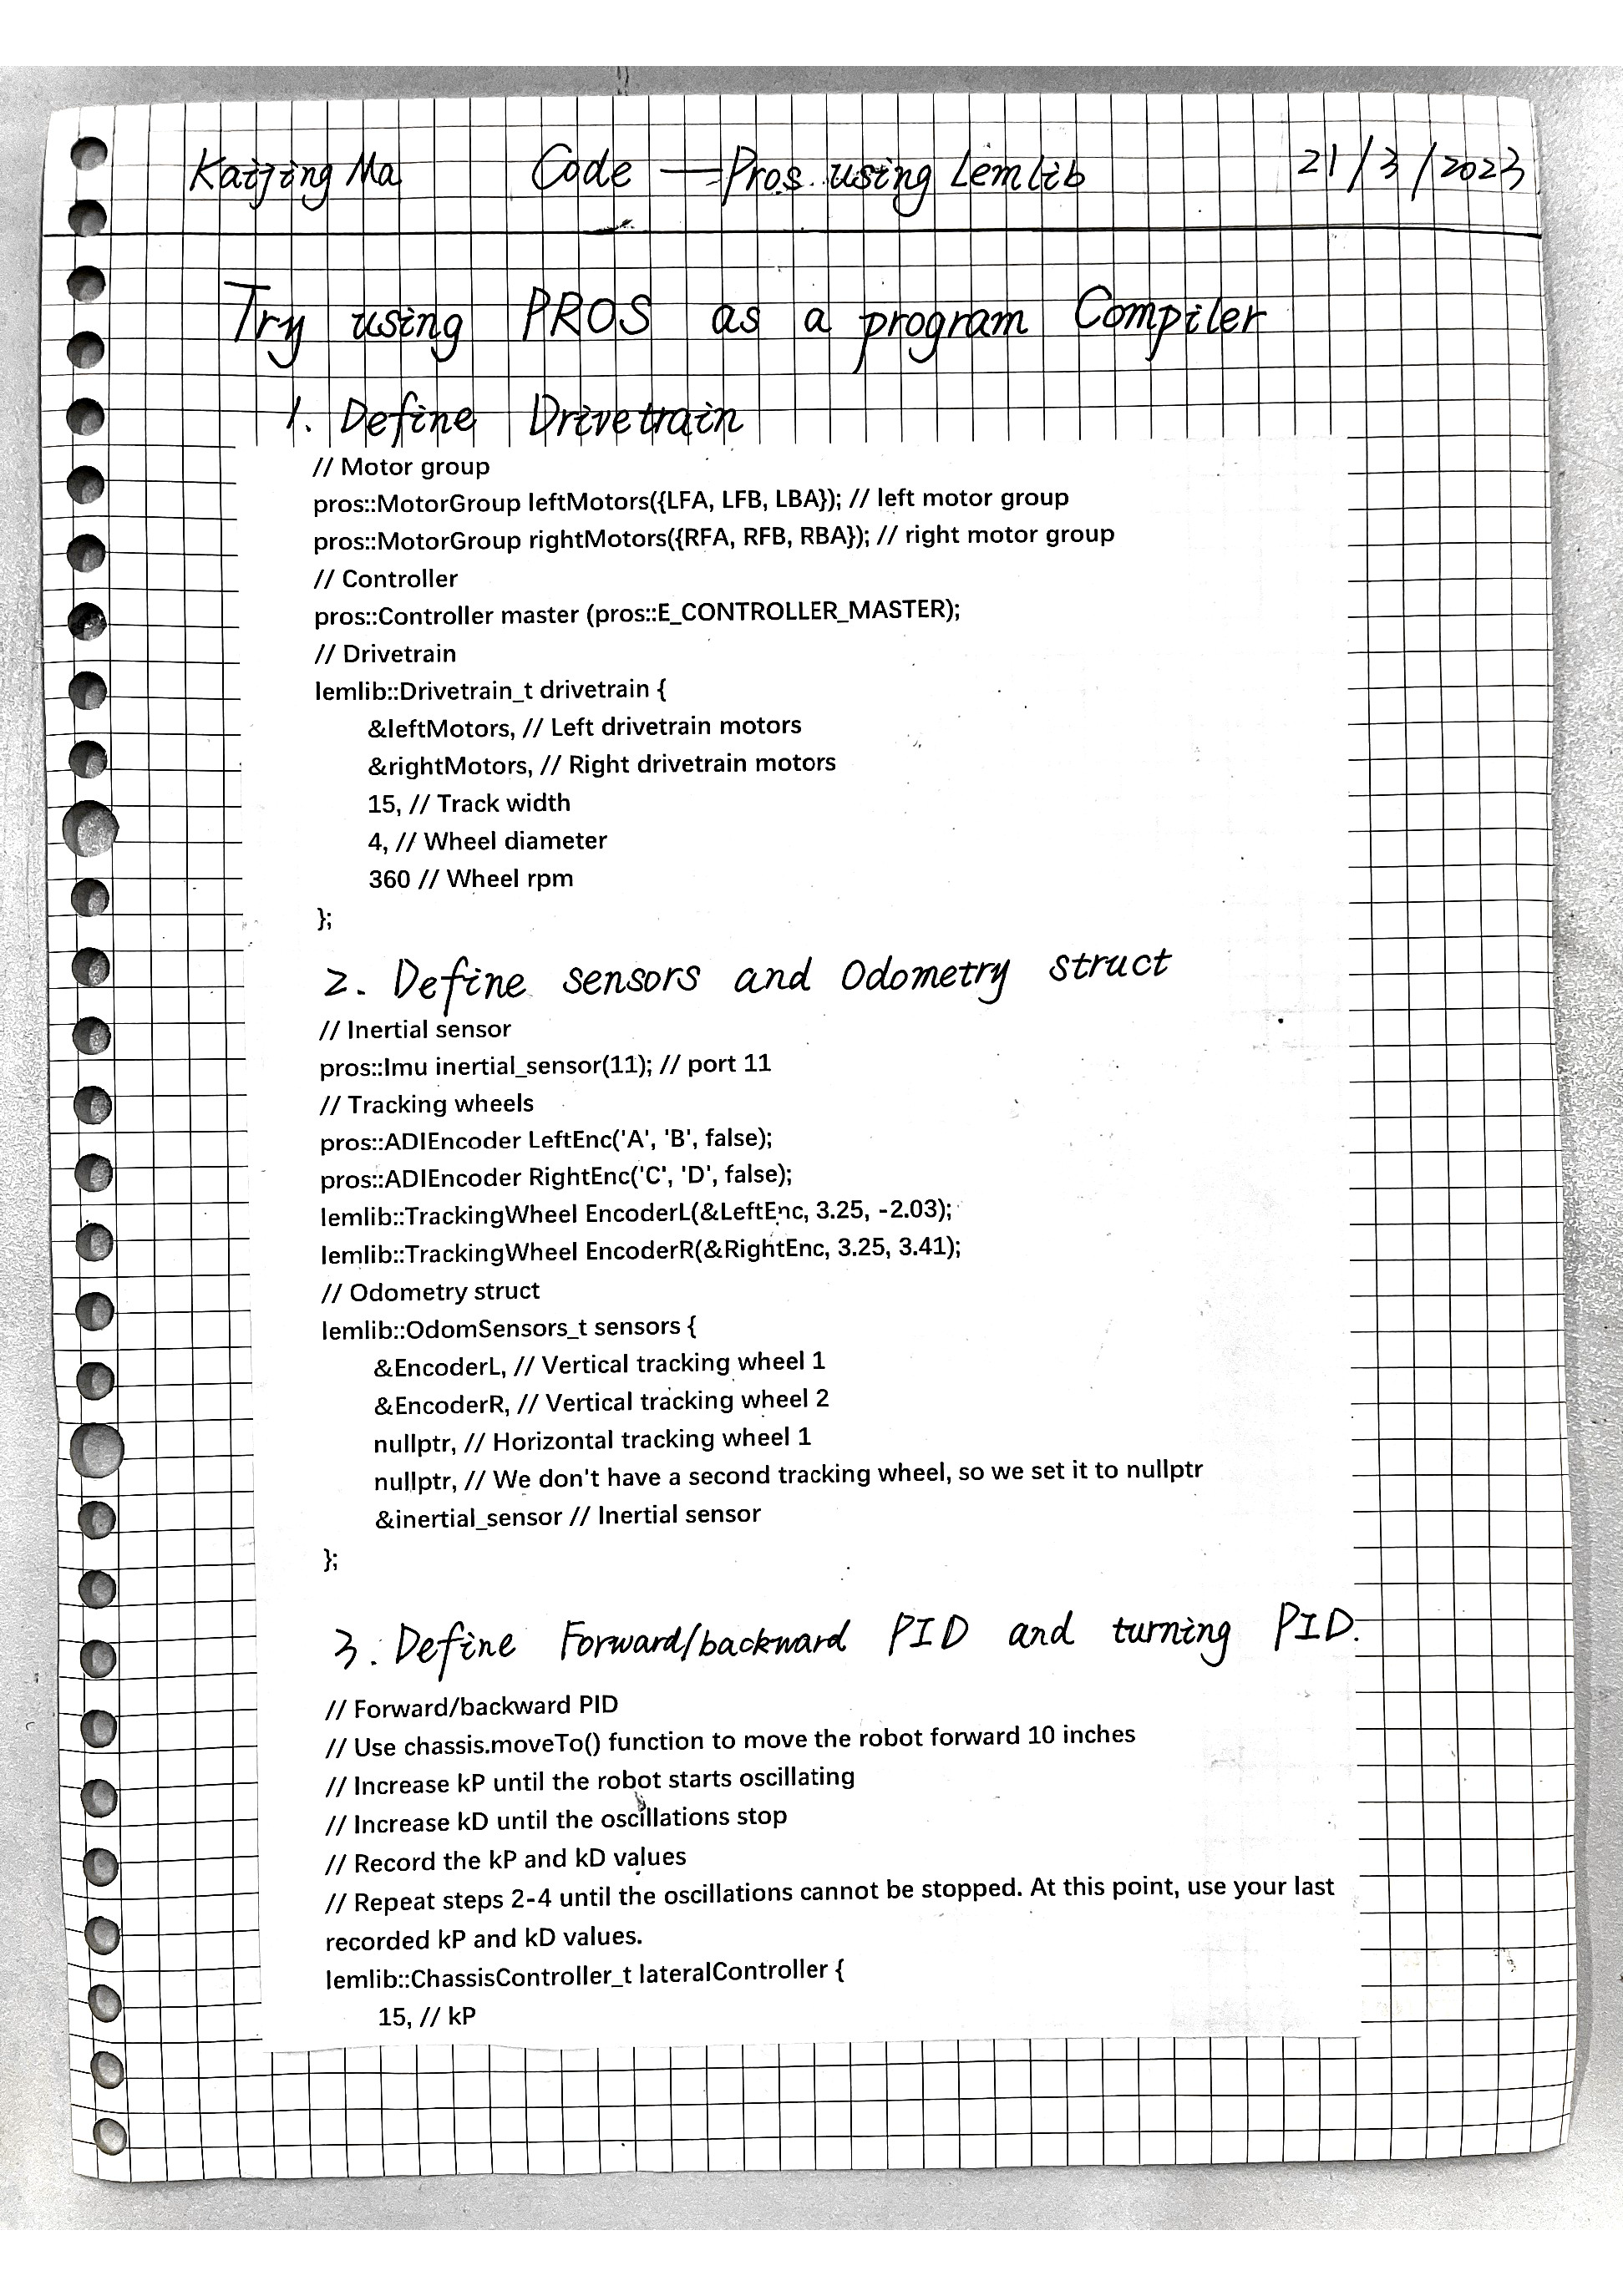 Kaijing Ma Code — Pros using Lemlib 21/3/2023
Try using PROS as a program Compiler
1. Define Drivetrain
// Motor group
pros::MotorGroup leftMotors({LFA, LFB, LBA}); // left motor group
pros::MotorGroup rightMotors({RFA, RFB, RBA}); // right motor group
// Controller
pros::Controller master (pros::E_CONTROLLER_MASTER);
// Drivetrain
lemlib::Drivetrain_t drivetrain {
&leftMotors, // Left drivetrain motors
&rightMotors, // Right drivetrain motors
15, // Track width
4, // Wheel diameter
360 // Wheel rpm
};
2. Define sensors and Odometry struct
// Inertial sensor
pros::Imu inertial_sensor(11); // port 11
// Tracking wheels
pros::ADIEncoder LeftEnc('A', 'B', false);
pros::ADIEncoder RightEnc('C', 'D', false);
lemlib::TrackingWheel EncoderL(&LeftEnc, 3.25, -2.03);
lemlib::TrackingWheel EncoderR(&RightEnc, 3.25, 3.41);
// Odometry struct
lemlib::OdomSensors_t sensors {
&EncoderL, // Vertical tracking wheel 1
&EncoderR, // Vertical tracking wheel 2
nullptr, // Horizontal tracking wheel 1
nullptr, // We don't have a second tracking wheel, so we set it to nullptr
&inertial_sensor // Inertial sensor
};
3. Define Forward/backward PID and turning PID.
// Forward/backward PID
// Use chassis.moveTo() function to move the robot forward 10 inches
// Increase kP until the robot starts oscillating
// Increase kD until the oscillations stop
// Record the kP and kD values
// Repeat steps 2-4 until the oscillations cannot be stopped. At this point, use your last
recorded kP and kD values.
lemlib::ChassisController_t lateralController {
15, // kP